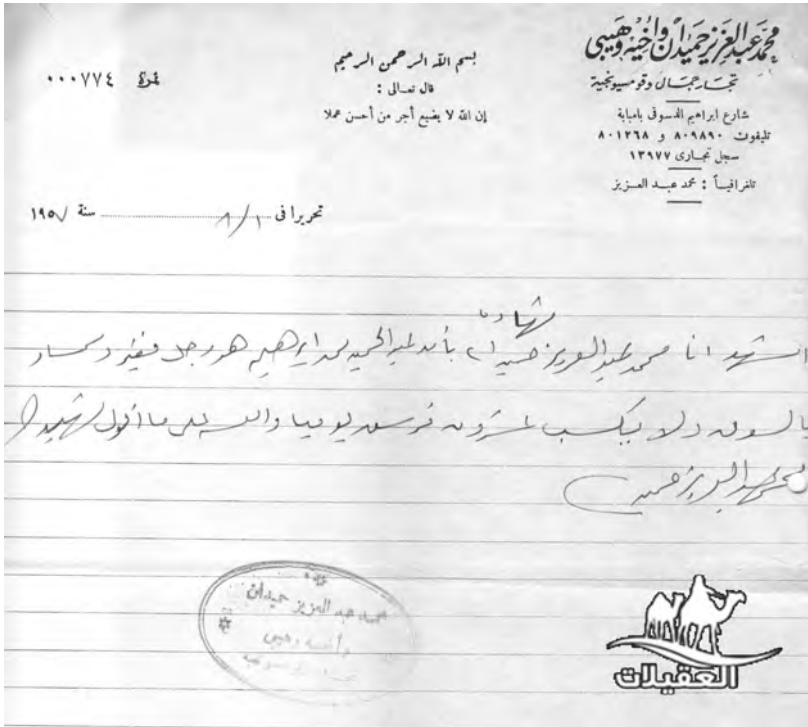 محمد عبد العزيز حميدان وأخيه وهيبى
تجار جمال وقومسيونجية
شارع ابراهيم الدسوقى بامبابة
تليفون ٨٠٩٨٩٠ و ٨٠١٢٦٨
سجل تجارى ١٣٩٧٧
تلغرافياً : محمد عبد العزيز
بسم الله الرحمن الرحيم
قال تعالى :
إن الله لا يضيع أجر من أحسن عملا
نمرة ٠٠٠٧٧٤
تحريرا فى ٨/١ سنة ١٩٥٧
شهادة
اشهد انا محمد عبد العزيز حميدان بأن عبد الحميد ابراهيم هو رجل فقير وسمسار
بالسوق ولا يكسب عشرون قرش يوميا والله على ما اقول شهيد
محمد عبد العزيز حميدان
محمد عبد العزيز حميدان
وأخيه وهيبى
العقيلات